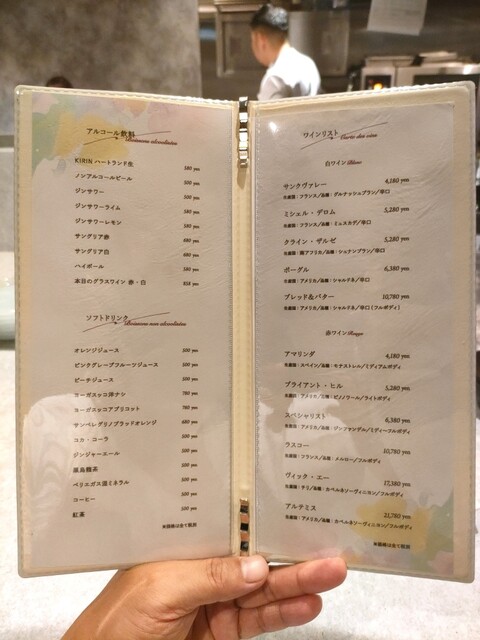 アルコール飲料
Boissons alcoolisées
KIRIN ハートランド生 580 yen
ノンアルコールビール 500 yen
ジンサワー 500 yen
ジンサワーライム 580 yen
ジンサワーレモン 580 yen
サングリア赤 680 yen
サングリア白 680 yen
ハイボール 580 yen
本日のグラスワイン 赤・白 858 yen
ソフトドリンク
Boissons non alcoolisées
オレンジジュース 500 yen
ピンクグレープフルーツジュース 500 yen
ピーチジュース 500 yen
ヨーガスッコ洋ナシ 780 yen
ヨーガスッコアプリコット 780 yen
サンペレグリノブラッドオレンジ 680 yen
コカ・コーラ 500 yen
ジンジャーエール 500 yen
烏龍茶 500 yen
ペリエガス濃ミネラル 500 yen
コーヒー 500 yen
紅茶 500 yen
※価格は全て税別
ワインリスト
Carte des vins
白ワイン Blanc
サンクヴァレー 4,180 yen
生産国：フランス/品種：グルナッシュブラン/辛口
ミシェル・デロム 5,280 yen
生産国：フランス/品種：ミュスカデ/辛口
クライン・ザルゼ 5,280 yen
生産国：南アフリカ/品種：シュナンブラン/辛口
ボーグル 6,380 yen
生産国：アメリカ/品種：シャルドネ/辛口
ブレッド&バター 10,780 yen
生産国：アメリカ/品種：シャルドネ/辛口(フルボディ)
赤ワイン Rouge
アマリンダ 4,180 yen
生産国：スペイン/品種：モナストレル/ミディアムボディ
ブライアント・ヒル 5,280 yen
生産国：アメリカ/品種：ピノワール/ライトボディ
スペシャリスト 6,380 yen
生産国：アメリカ/品種：ジンファンデル/ミディ〜フルボディ
ラスコー 10,780 yen
生産国：フランス/品種：メルロー/フルボディ
ヴィック・エー 17,380 yen
生産国：チリ/品種：カベルネソーヴィニヨン/フルボディ
アルテミス 21,780 yen
生産国：アメリカ/品種：カベルネソーヴィニヨン/フルボディ
※価格は全て税別